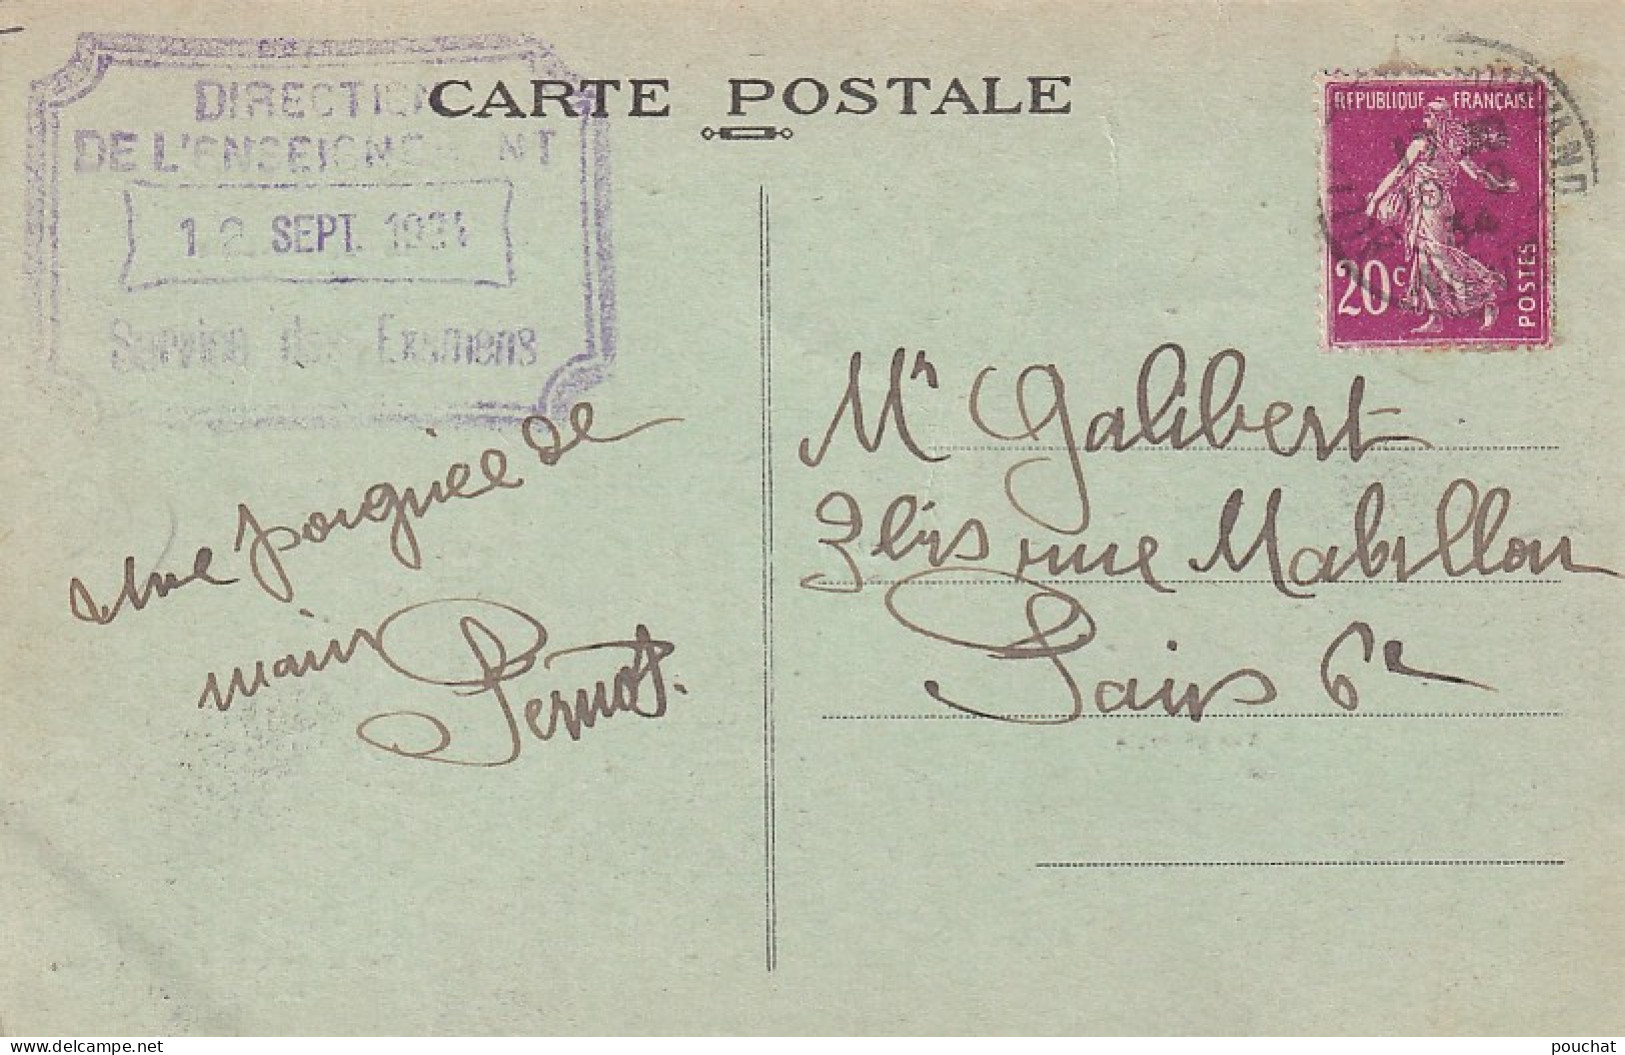 DIRECTION
DE L'ENSEIGNEMENT
12 SEPT. 1934
Service des Examens
CARTE POSTALE
REPUBLIQUE FRANÇAISE
20c
POSTES
Une poignée de
main
Pernot.
Mr Galibert
3 bis rue Mabillon
Paris 6e
pouchat